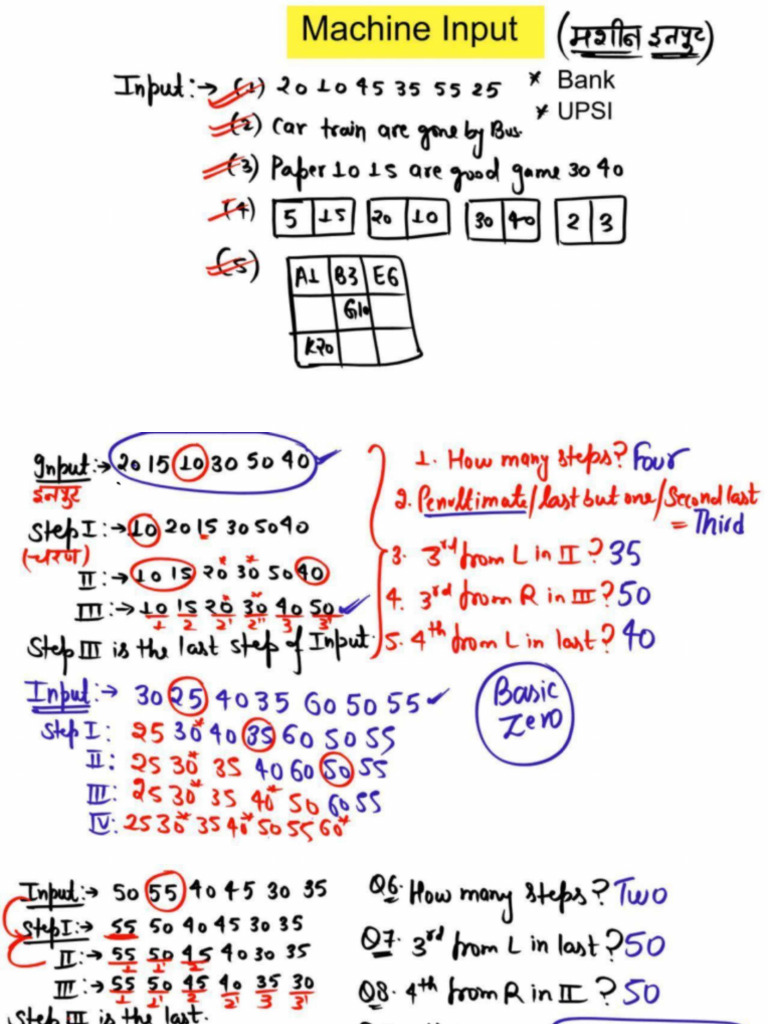 Machine Input (मशीन इनपुट)
Input:→ (1) 20 10 45 35 55 25 * Bank
(2) Car train are gone by Bus. * UPSI
(3) Paper 10 15 are good game 30 40
(4) 5 15 20 10 30 40 2 3
(5) A1 B3 E6
G10
K20
Input:→ 20 15 10 30 50 40 ✓
इनपुट
Step I:→ 10 20 15 30 50 40
(चरण)
II:→ 10 15 20* 30* 50 40
III:→ 10 15 20* 30* 40 50 ✓
1 2 2' 2'' 3 3'
Step III is the last step of Input.
1. How many steps? Four
2. Penultimate/last but one/Second last
= Third
3. 3rd from L in II? 35
4. 3rd from R in III? 50
5. 4th from L in last? 40
Input:→ 30 25 40 35 60 50 55 ✓
Step I: 25 30* 40 35 60 50 55
II: 25 30* 35 40 60 50 55
III: 25 30* 35 40* 50 60 55
IV: 25 30* 35 40* 50 55 60*
Basic
Zero
Input:→ 50 55 40 45 30 35
Step I:→ 55 50 40 45 30 35
II:→ 55 50 45 40 30 35
1 1' 2
III:→ 55 50 45 40 35 30
1 1' 2 2' 3 3'
Step III is the last.
Q6. How many steps? Two
Q7. 3rd from L in last? 50
Q8. 4th from R in II? 50